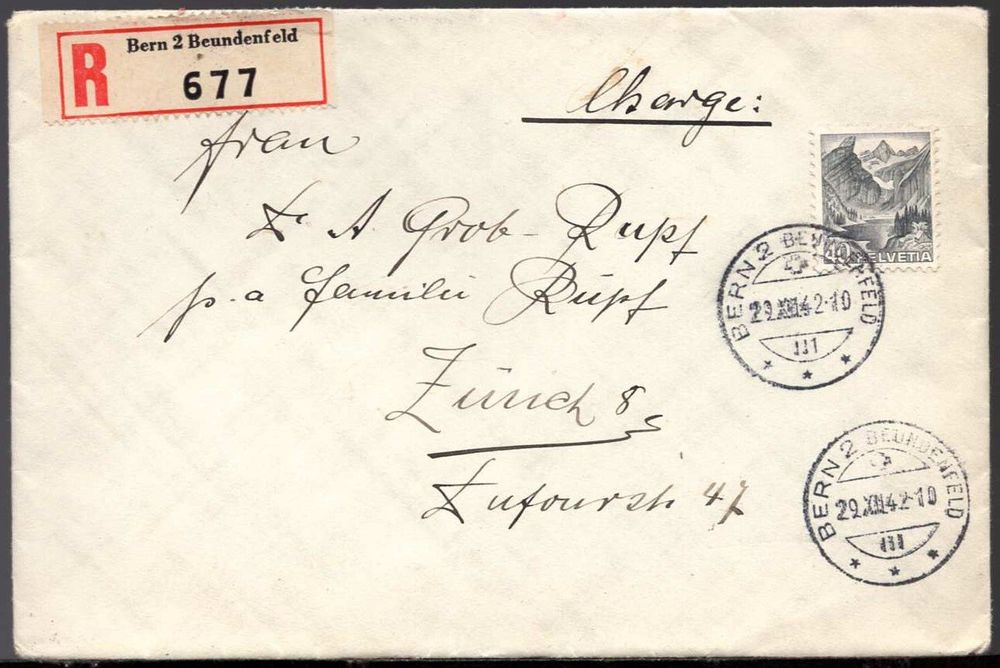 R
Bern 2 Beundenfeld
677
Charge:
Frau
Dr A Grob-Rupf
p. a familie Rüpf
Zürich 8
Dufourstr 47
40 HELVETIA
BERN 2 BEUNDENFELD
29.XII.42-10
III
BERN 2 BEUNDENFELD
29.XII.42-10
III